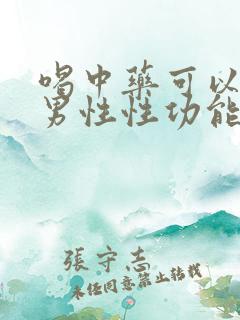 喝中药可以
男性性功能
張守志
未经同意禁止转载